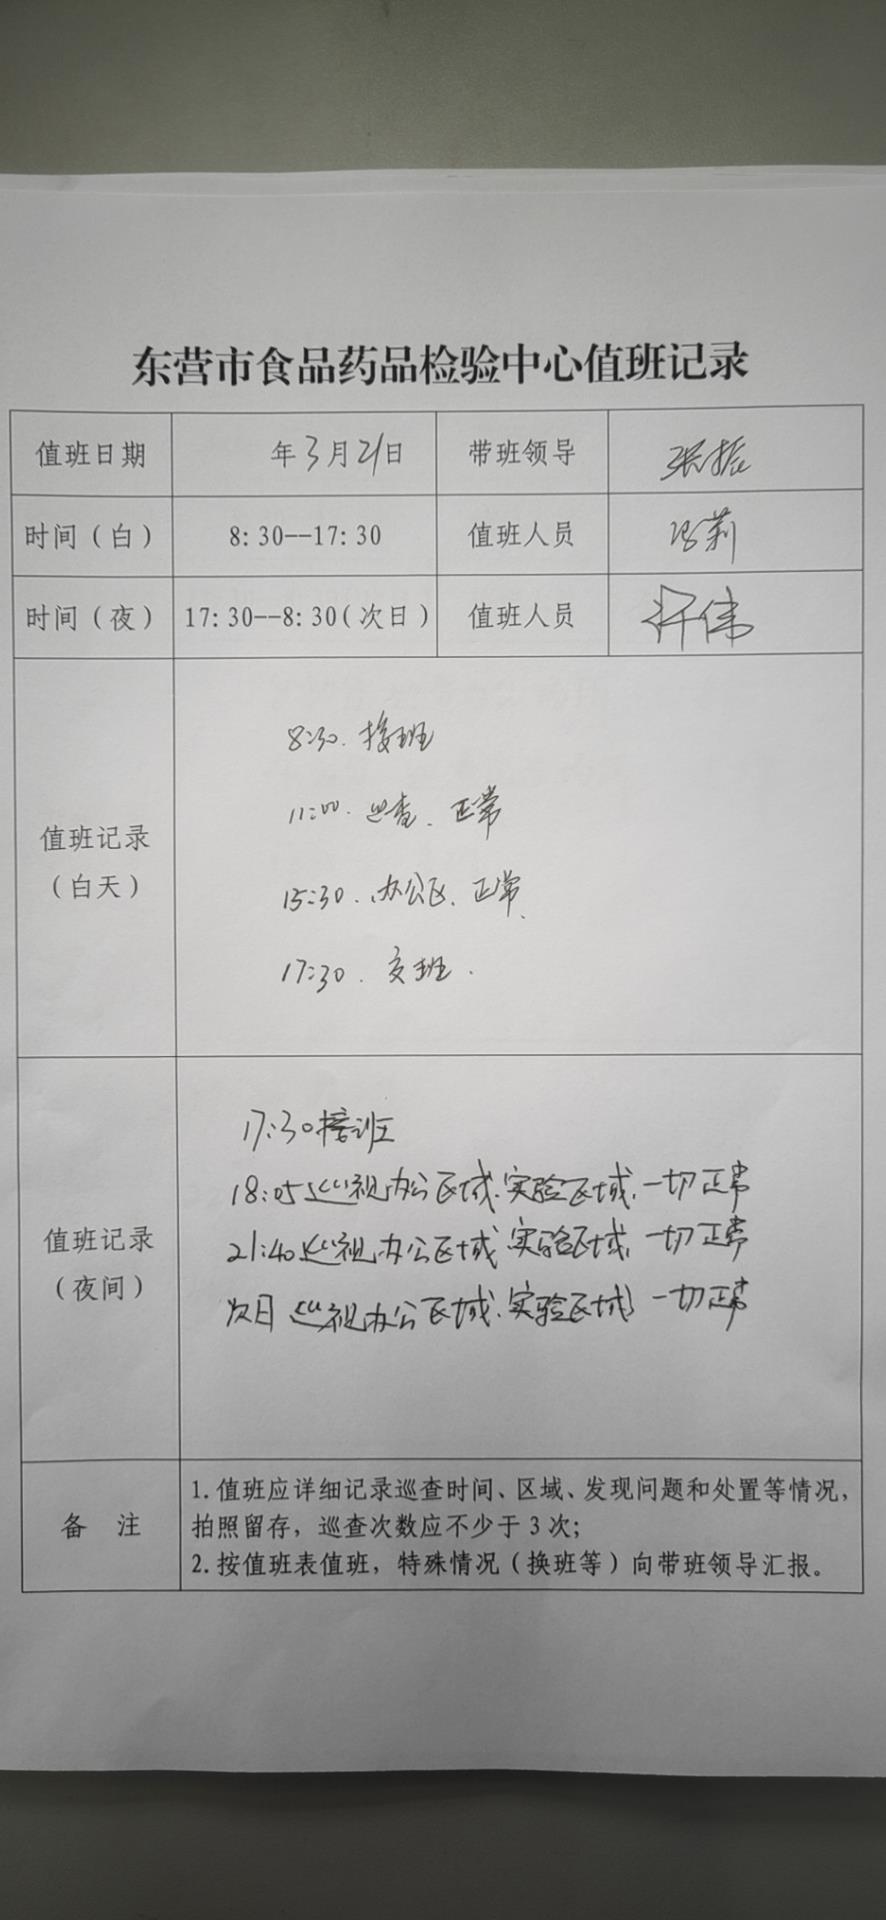 东营市食品药品检验中心值班记录
值班日期 年3月21日 带班领导 张振
时间（白） 8:30--17:30 值班人员 冯莉
时间（夜） 17:30--8:30（次日） 值班人员 伟
8:30. 接班
11:00. 巡查. 正常
值班记录
（白天）
15:30. 办公区. 正常.
17:30. 交班.
17:30接班
18:05巡视办公区域.实验区域.一切正常
21:40巡视办公区域 实验区域,一切正常
值班记录
（夜间）
次日 巡视办公区域.实验区域 一切正常
备 注
1.值班应详细记录巡查时间、区域、发现问题和处置等情况，
拍照留存，巡查次数应不少于3次；
2.按值班表值班，特殊情况（换班等）向带班领导汇报。